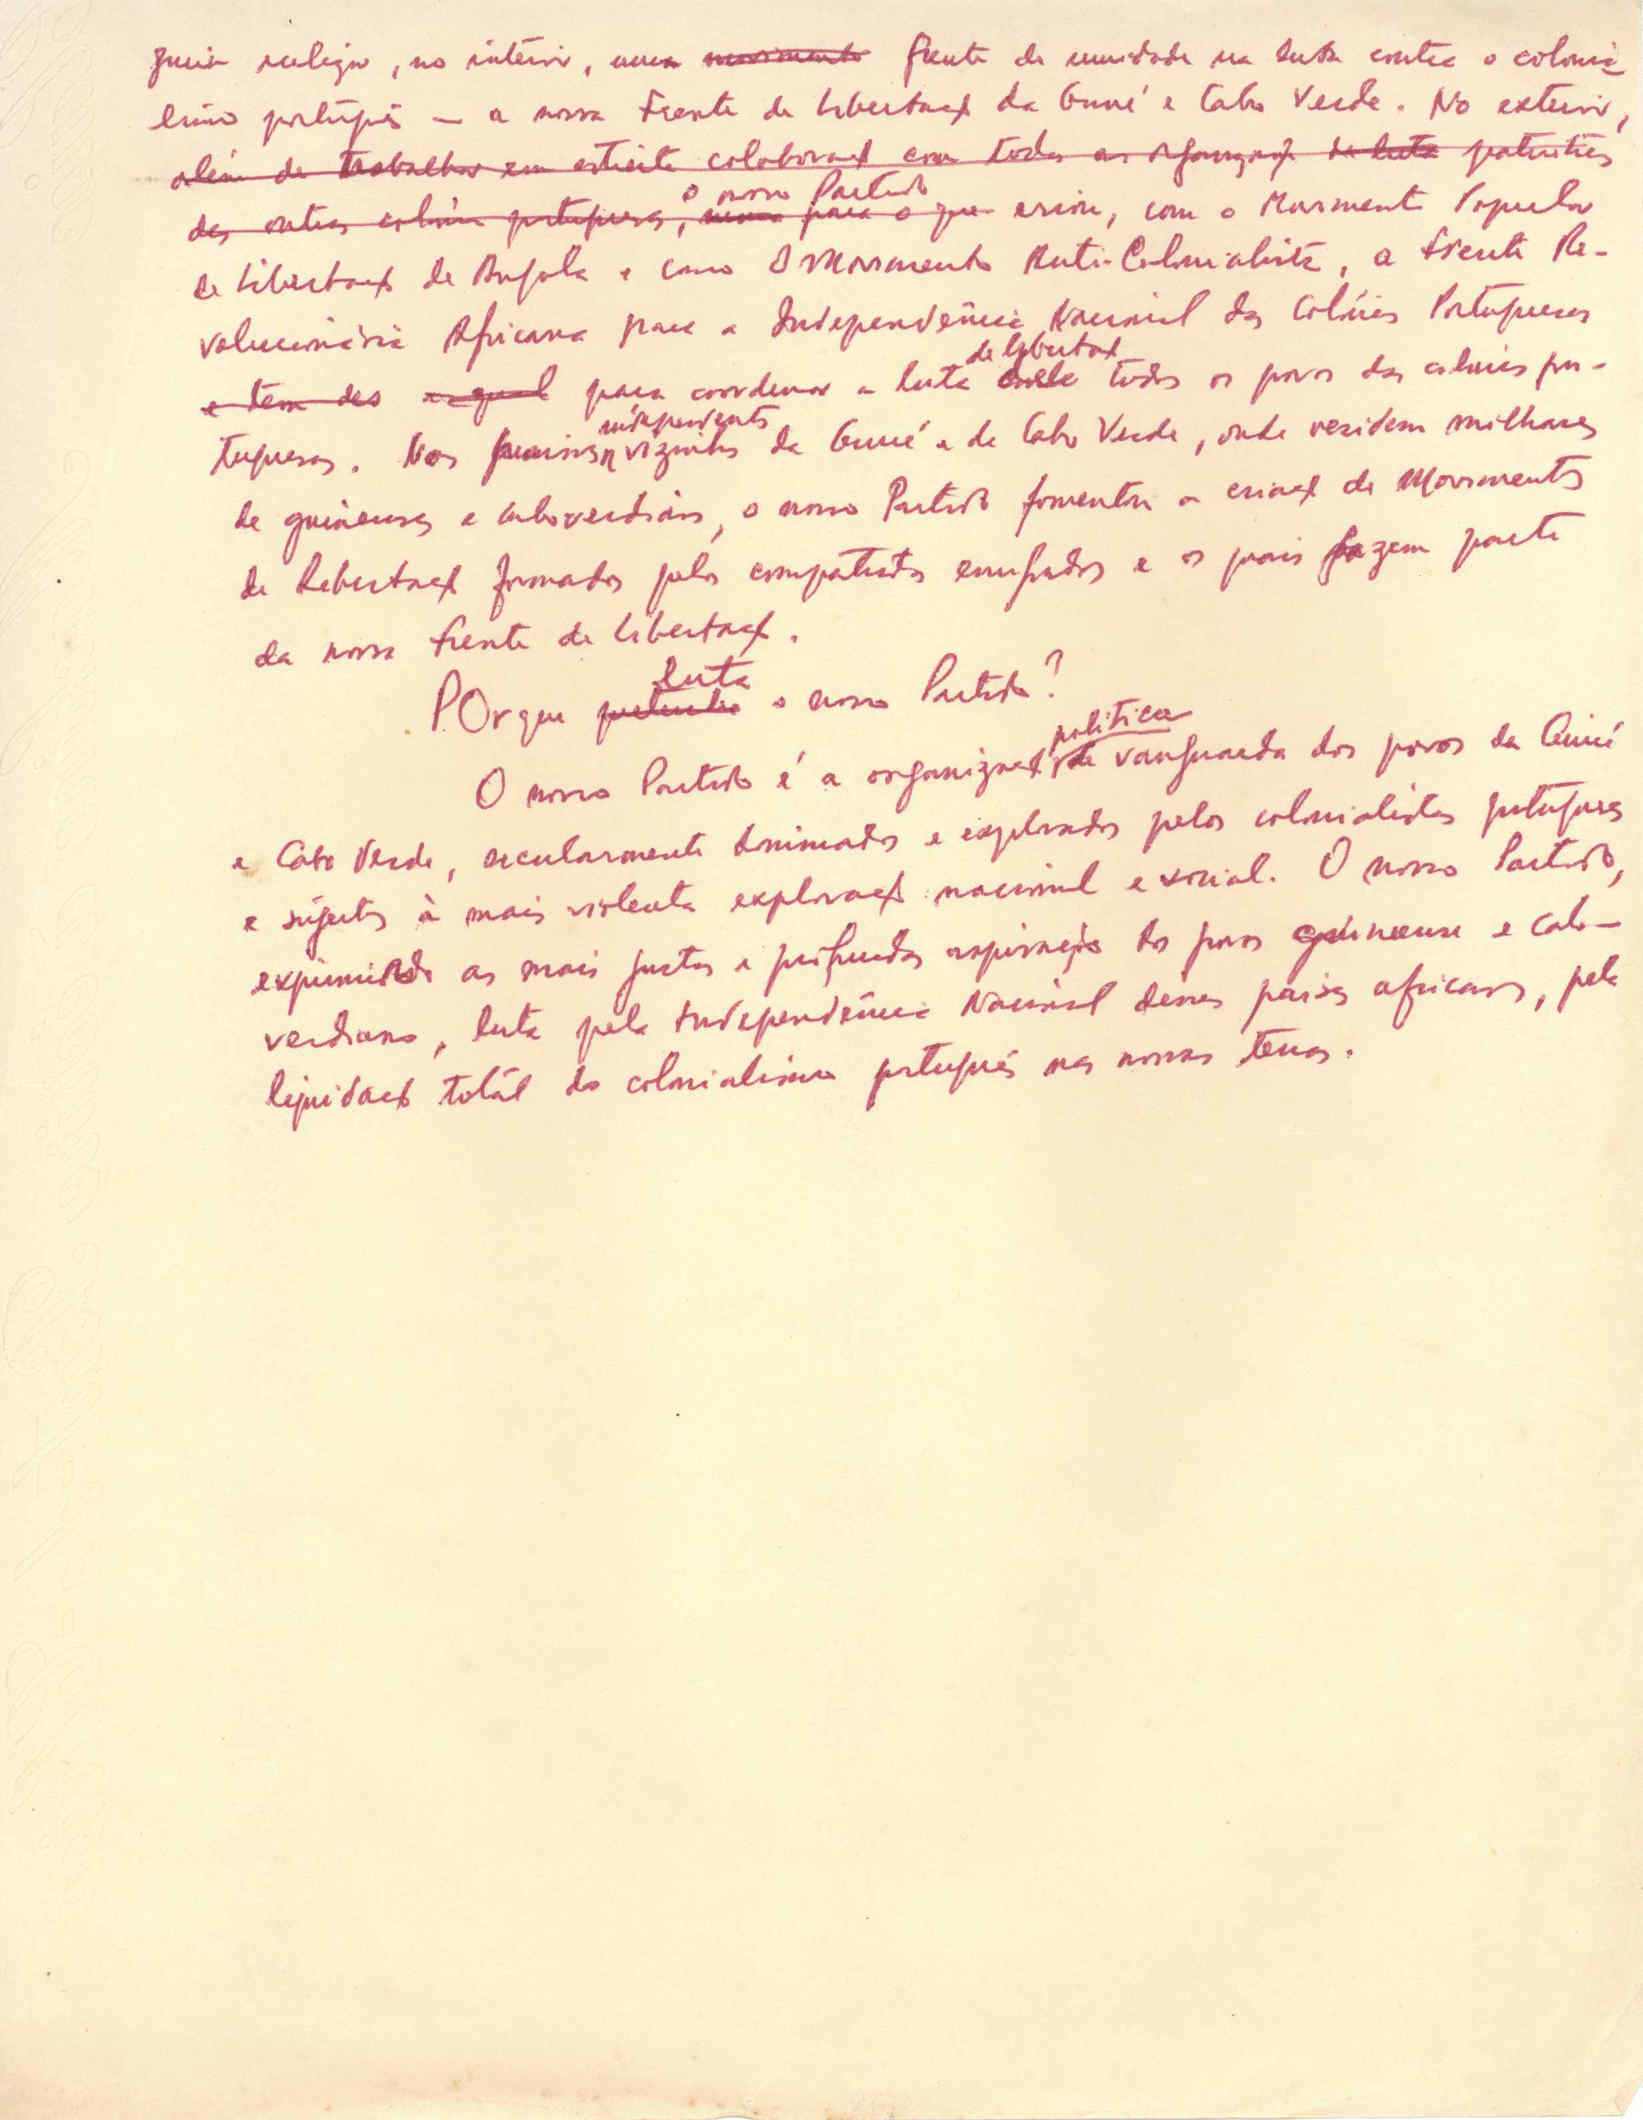 guiu realizar, no interior, uma movimento frente de unidade na luta contra o colonia-
lismo português — a nossa Frente de Libertação da Guiné e Cabo Verde. No exterior,
além de trabalhar em estreita colaboração com todas as organizações de luta patrióticas
das outras colónias portuguesas, o nosso Partido para o que criou, com o Movimento Popular
de Libertação de Angola e com o Movimento Anti-Colonialista, a Frente Re-
volucionária Africana para a Independência Nacional das Colónias Portuguesas
e tem des a qual para coordenar a luta de libertação de todos os povos das colónias por-
tuguesas. Nos países independentes vizinhos da Guiné e de Cabo Verde, onde residem milhares
de guineenses e caboverdianos, o nosso Partido fomentou a criação de Movimentos
de Libertação formados pelos compatriotas emigrados e os quais fazem parte
da nossa Frente de Libertação.
POrque luta o nosso Partido?
O nosso Partido é a organização política de vanguarda dos povos da Guiné
e Cabo Verde, secularmente dominados e explorados pelos colonialistas portugueses
e sujeitos à mais violenta exploração nacional e social. O nosso Partido,
exprimindo as mais justas e profundas aspirações dos povos guineense e cabo-
verdiano, luta pela Independência Nacional desses países africanos, pela
liquidação total do colonialismo português nas nossas terras.